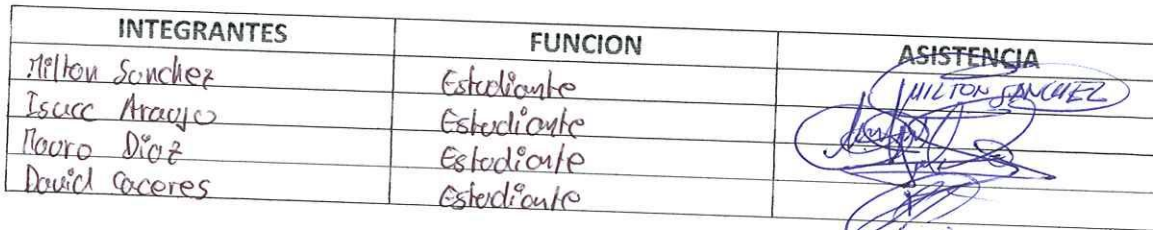 INTEGRANTES FUNCION ASISTENCIA
Milton Sanchez Estudiante MILTON SANCHEZ
Isacc Araujo Estudiante
Mauro Diaz Estudiante
David Caceres Estudiante